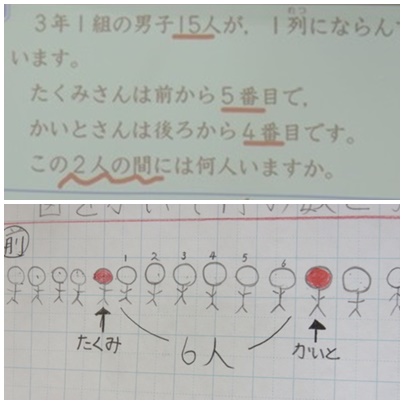 3年1組の男子15人が、1列にならんで
います。
たくみさんは前から5番目で、
かいとさんは後ろから4番目です。
この2人の間には何人いますか。
前
1 2 3 4 5 6
たくみ 6人 かいと